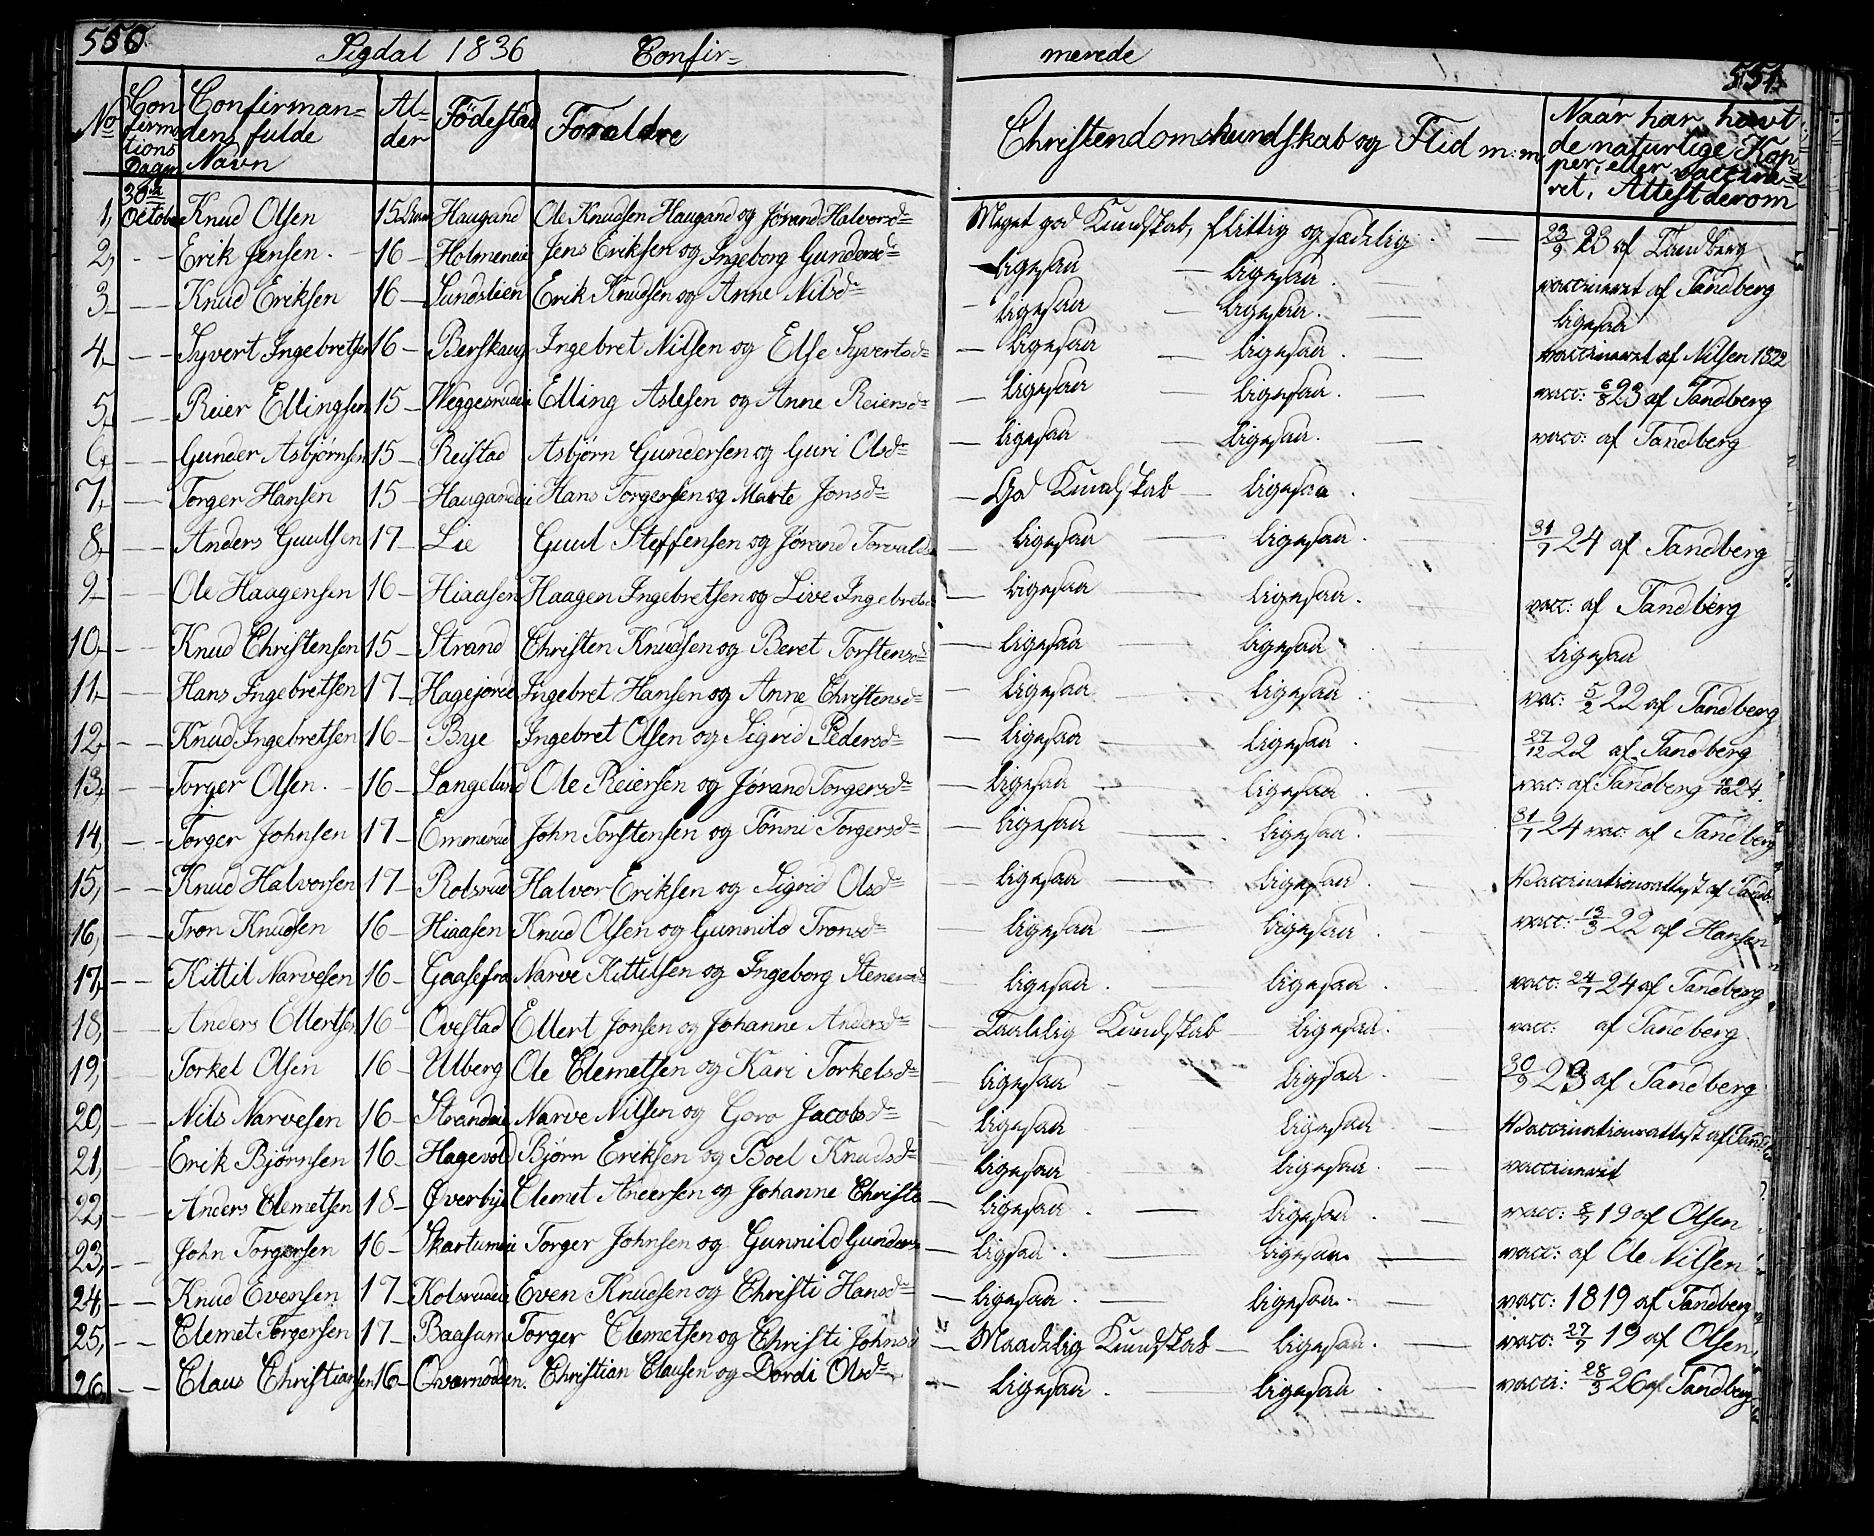 550.
Sigdal 1836 Confir=
merede
551.
No
Con
firma
tions
Dagen
Confirman=
dens fulde
Navn
Al=
der
Födestad
Foraldre
Christendomskundskab og Flid m:m
Naar har havt
de naturlige Kop=
per, eller vaccine=
ret, Attest derom
30te
1, October Knud Olsen 15 Haugand Ole Knudsen Haugand og Jørand Halvorsd= Meget god Kundskab, flittig og sædelig. — 23/9 23 af Tandberg
2, — — Erik Jensen. — 16 — Holmeneie Jens Eriksen og Ingeborg Gundersd= — ligesaa — ligesaa. — vaccineret af Tandberg
3, — — Knud Eriksen 16 — Sundstien Erik Knudsen og Anne Nilsd= — ligesaa — ligesaa. — ligesaa
4, — — Syvert Ingebretsen 16 — Berskaug Ingebret Nilsen og Else Syvertsd= — ligesaa — ligesaa. — vaccineret af Nilsen 1822
5, — — Reier Ellingsen 15 — Weggesrudeie Elling Aslesen og Anne Reiersd= — ligesaa — ligesaa. — vacc: 6/8 23 af Tandberg
6, — — Gunder Asbjørnsen 15 — Reistad Asbjørn Gundersen og Guri Olsd= — ligesaa — ligesaa. — vacc: af Tandberg
7, — — Torger Hansen 15 — Haugandeie Hans Torgersen og Marte Jonsd= — God Kundskab — ligesaa.
8, — — Anders Guulsen 17 — Lie Guul Steffensen og Jørand Torvalds — ligesaa — ligesaa. — 31/7 24 af Tandberg
9 — — Ole Haagensen 16 — Hiaasen Haagen Ingebretsen og Live Ingebretsd — ligesaa — ligesaa. — vacc: af Tandberg
10, — — Knud Christensen 15 — Strand Christen Knudsen og Beret Torstensd= — ligesaa — ligesaa. — ligesaa
11, — — Hans Ingebretsen 17 — Hagejorde Ingebret Hansen og Anne Christensd= — ligesaa — ligesaa. — vac: 5/2 22 af Tandberg
12, — — Knud Ingebretsen 16 — Bye Ingebret Olsen og Sigrid Pedersd= — ligesaa — ligesaa. — 27/12 22 af Tandberg
13, — — Torger Olsen. — 16 — Langelund Ole Reiersen og Jørand Torgersd= — ligesaa — ligesaa. — vac: af Tandberg 24.
14, — — Torger Johnsen 17 — Emmerud John Torstensen og Tønni Torgersd= — ligesaa — ligesaa. — 31/7 24 vac. af Tandberg
15, — — Knud Halvorsen 17 — Rolsrud Halvor Eriksen og Sigrid Olsd= — ligesaa — ligesaa. — Vaccinationsattest af Tandb.
16, — — Tron Knudsen 16 — Hiaasen Knud Olsen og Gunnild Tronsd= — ligesaa — ligesaa. — vacc: 13/3 22 af Hansen
17, — — Kittil Narvesen 16 — Gaasefra Narve Kittilsen og Ingeborg Stenersd — ligesaa. — ligesaa. — vacc: 24/7 24 af Tandberg
18, — — Anders Ellertsen 16 — Ovestad Ellert Jonsen og Johanne Andersd= — Taalelig Kundskab ligesaa. — vacc: af Tandberg
19, — — Torkel Olsen 16 — Ulberg Ole Clemetsen og Kari Torkelsd= — ligesaa — ligesaa. — 30/9 23 af Tandberg
20, — — Nils Narvesen 16 — Strandeie Narve Nilsen og Goro Jacobsd= — ligesaa ligesaa — Vaccinationsattest af Tandb
21, — — Erik Bjørnsen 16 — Hagevold Bjørn Eriksen og Boel Knudsd= — ligesaa — ligesaa. — vaccineret
22, — — Anders Clemetsen 18 — Øverbye Clemet Andersen og Johanne Christe — ligesaa. — ligesaa. — vacc: 8/7 19 af Olsen
23, — — John Torgersen 16 — Skartumeie Torger Johnsen og Gunnild Gunders — ligesaa. — ligesaa. — vacc: af Ole Nilsen
24, — — Knud Evensen 17 — Kolsrudeie Even Knudsen og Christi Hansd= — ligesaa. — ligesaa. — vacc: 1819 af Tandberg
25, — — Clemet Torgersen 17 — Baasum Torger Clemetsen og Christi Johnsd — Maadelig Kundskab — ligesaa. — vacc: 27/7 19 af Olsen
26, — — Claus Christiansen 16 — Qvarnodden. Christian Clausen og Dordi Olsd= — ligesaa. — ligesaa. — vacc: 28/3 26 af Tandberg